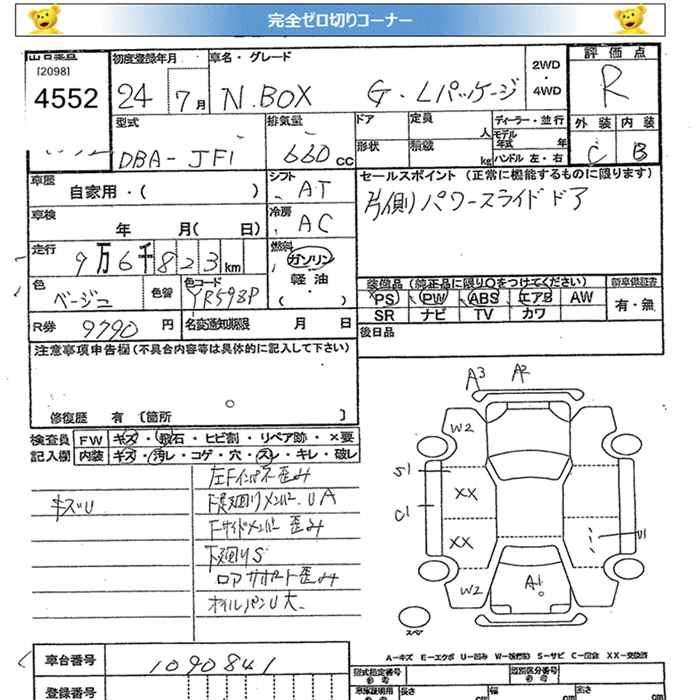 完全ゼロ切りコーナー
[2098]
4552
初度登録年月
24 7月
車名・グレード
N.BOX G・Lパッケージ
2WD
・
4WD
評価点
R
外装 内装
C B
型式
DBA-JF1
排気量
660cc
ドア 定員 人
形状 積載 kg
ディーラー・並行
モデル年式 年
ハンドル 左・右
車歴
自家用・( )
シフト
AT
セールスポイント (正常に機能するものに限ります)
片側パワースライドドア
車検
年 月( 日)
冷房
AC
走行
9万6千823km
燃料
ガソリン
軽油
・( )
色
ベージュ
色替
色コード
YR598P
装備品 (純正品に限り○をつけてください)
PS PW ABS エアB AW
SR ナビ TV カワ
新車保証書
有・無
R券 9790円
名変通知期限 月 日
後日品
注意事項申告欄(不具合内容等は具体的に記入して下さい)
修復歴 有 [箇所 ]
検査員 FW キズ・飛石・ヒビ割・リペア跡・×要
記入欄 内装 キズ・汚レ・コゲ・穴・スレ・キレ・破レ
キズU
左Fインパネ歪み
F下廻りメンバーUA
Fサイドメンバー歪み
下廻りS
ロアサポート歪み
オイルパンU大
A3 A2
W2
S1
XX
C1
XX
U1
W2
A1
スペア
A-キズ E-エクボ U-凹み W-波修 S-サビ C-腐食 XX-交換済
車台番号 1090841
登録番号
型式指定番号
類別区分番号
長さ cm
幅 cm
高さ cm